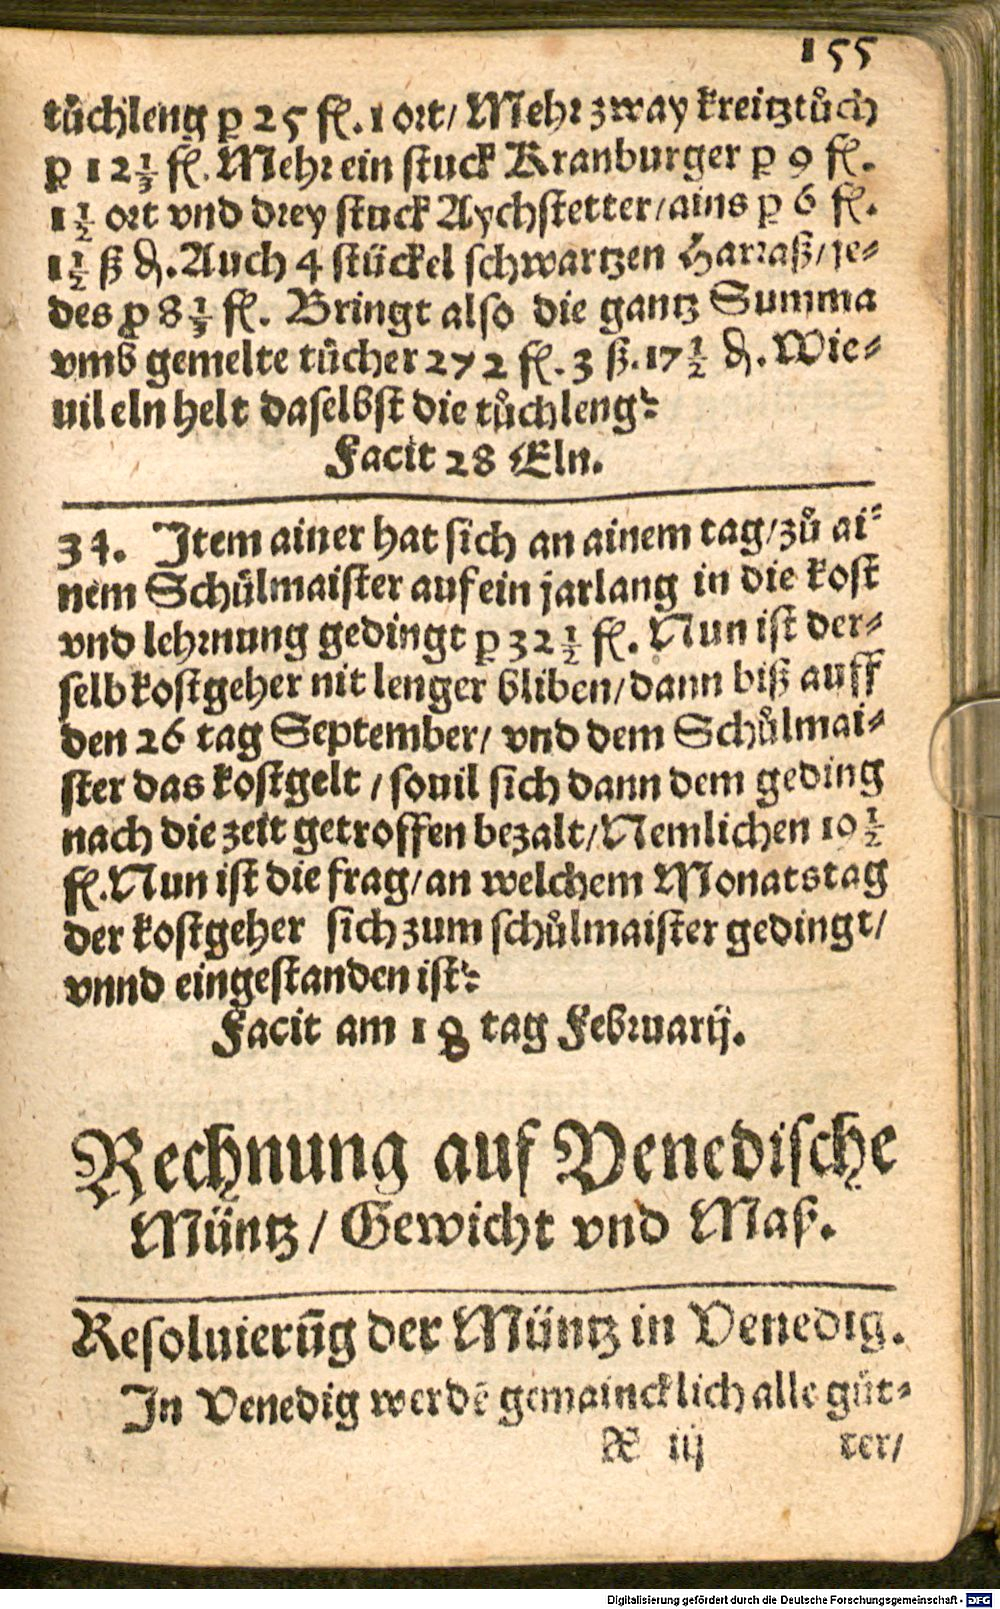 155
tůchleng ꝑ 25 fl. 1 ort/ Mehr zway kreitztůch
ꝑ 12 1/3 fl. Mehr ein stuck Kranburger ꝑ 9 fl.
1 1/2 ort vnd drey stuck Aychstetter/ ains ꝑ 6 fl.
1 1/2 ß ₰. Auch 4 stückel schwartzen Harraß/ je⸗
des ꝑ 8 1/3 fl. Bringt also die gantz Summa
vmb gemelte tücher 272 fl. 3 ß. 17 1/2 ₰. Wie⸗
uil eln helt daselbst die tůchleng?
Facit 28 Eln.
34. Item ainer hat sich an ainem tag/ zů ai⸗
nem Schůlmaister auf ein jarlang in die kost
vnd lehrnung gedingt ꝑ 32 1/2 fl. Nun ist der⸗
selb kostgeher nit lenger bliben/ dann biß auff
den 26 tag September/ vnd dem Schůlmai⸗
ster das kostgelt / souil sich dann dem geding
nach die zeit getroffen bezalt/ Nemlichen 19 1/2
fl. Nun ist die frag/ an welchem Monatstag
der kostgeher sich zum schůlmaister gedingt/
vnnd eingestanden ist?
Facit am 18 tag Februarij.
Rechnung auf Venedische
Müntz/ Gewicht vnd Maß.
Resoluierūg der Müntz in Venedig.
In Venedig werdē gemaincklich alle güt⸗
X iij ter/
Digitalisierung gefördert durch die Deutsche Forschungsgemeinschaft - DFG